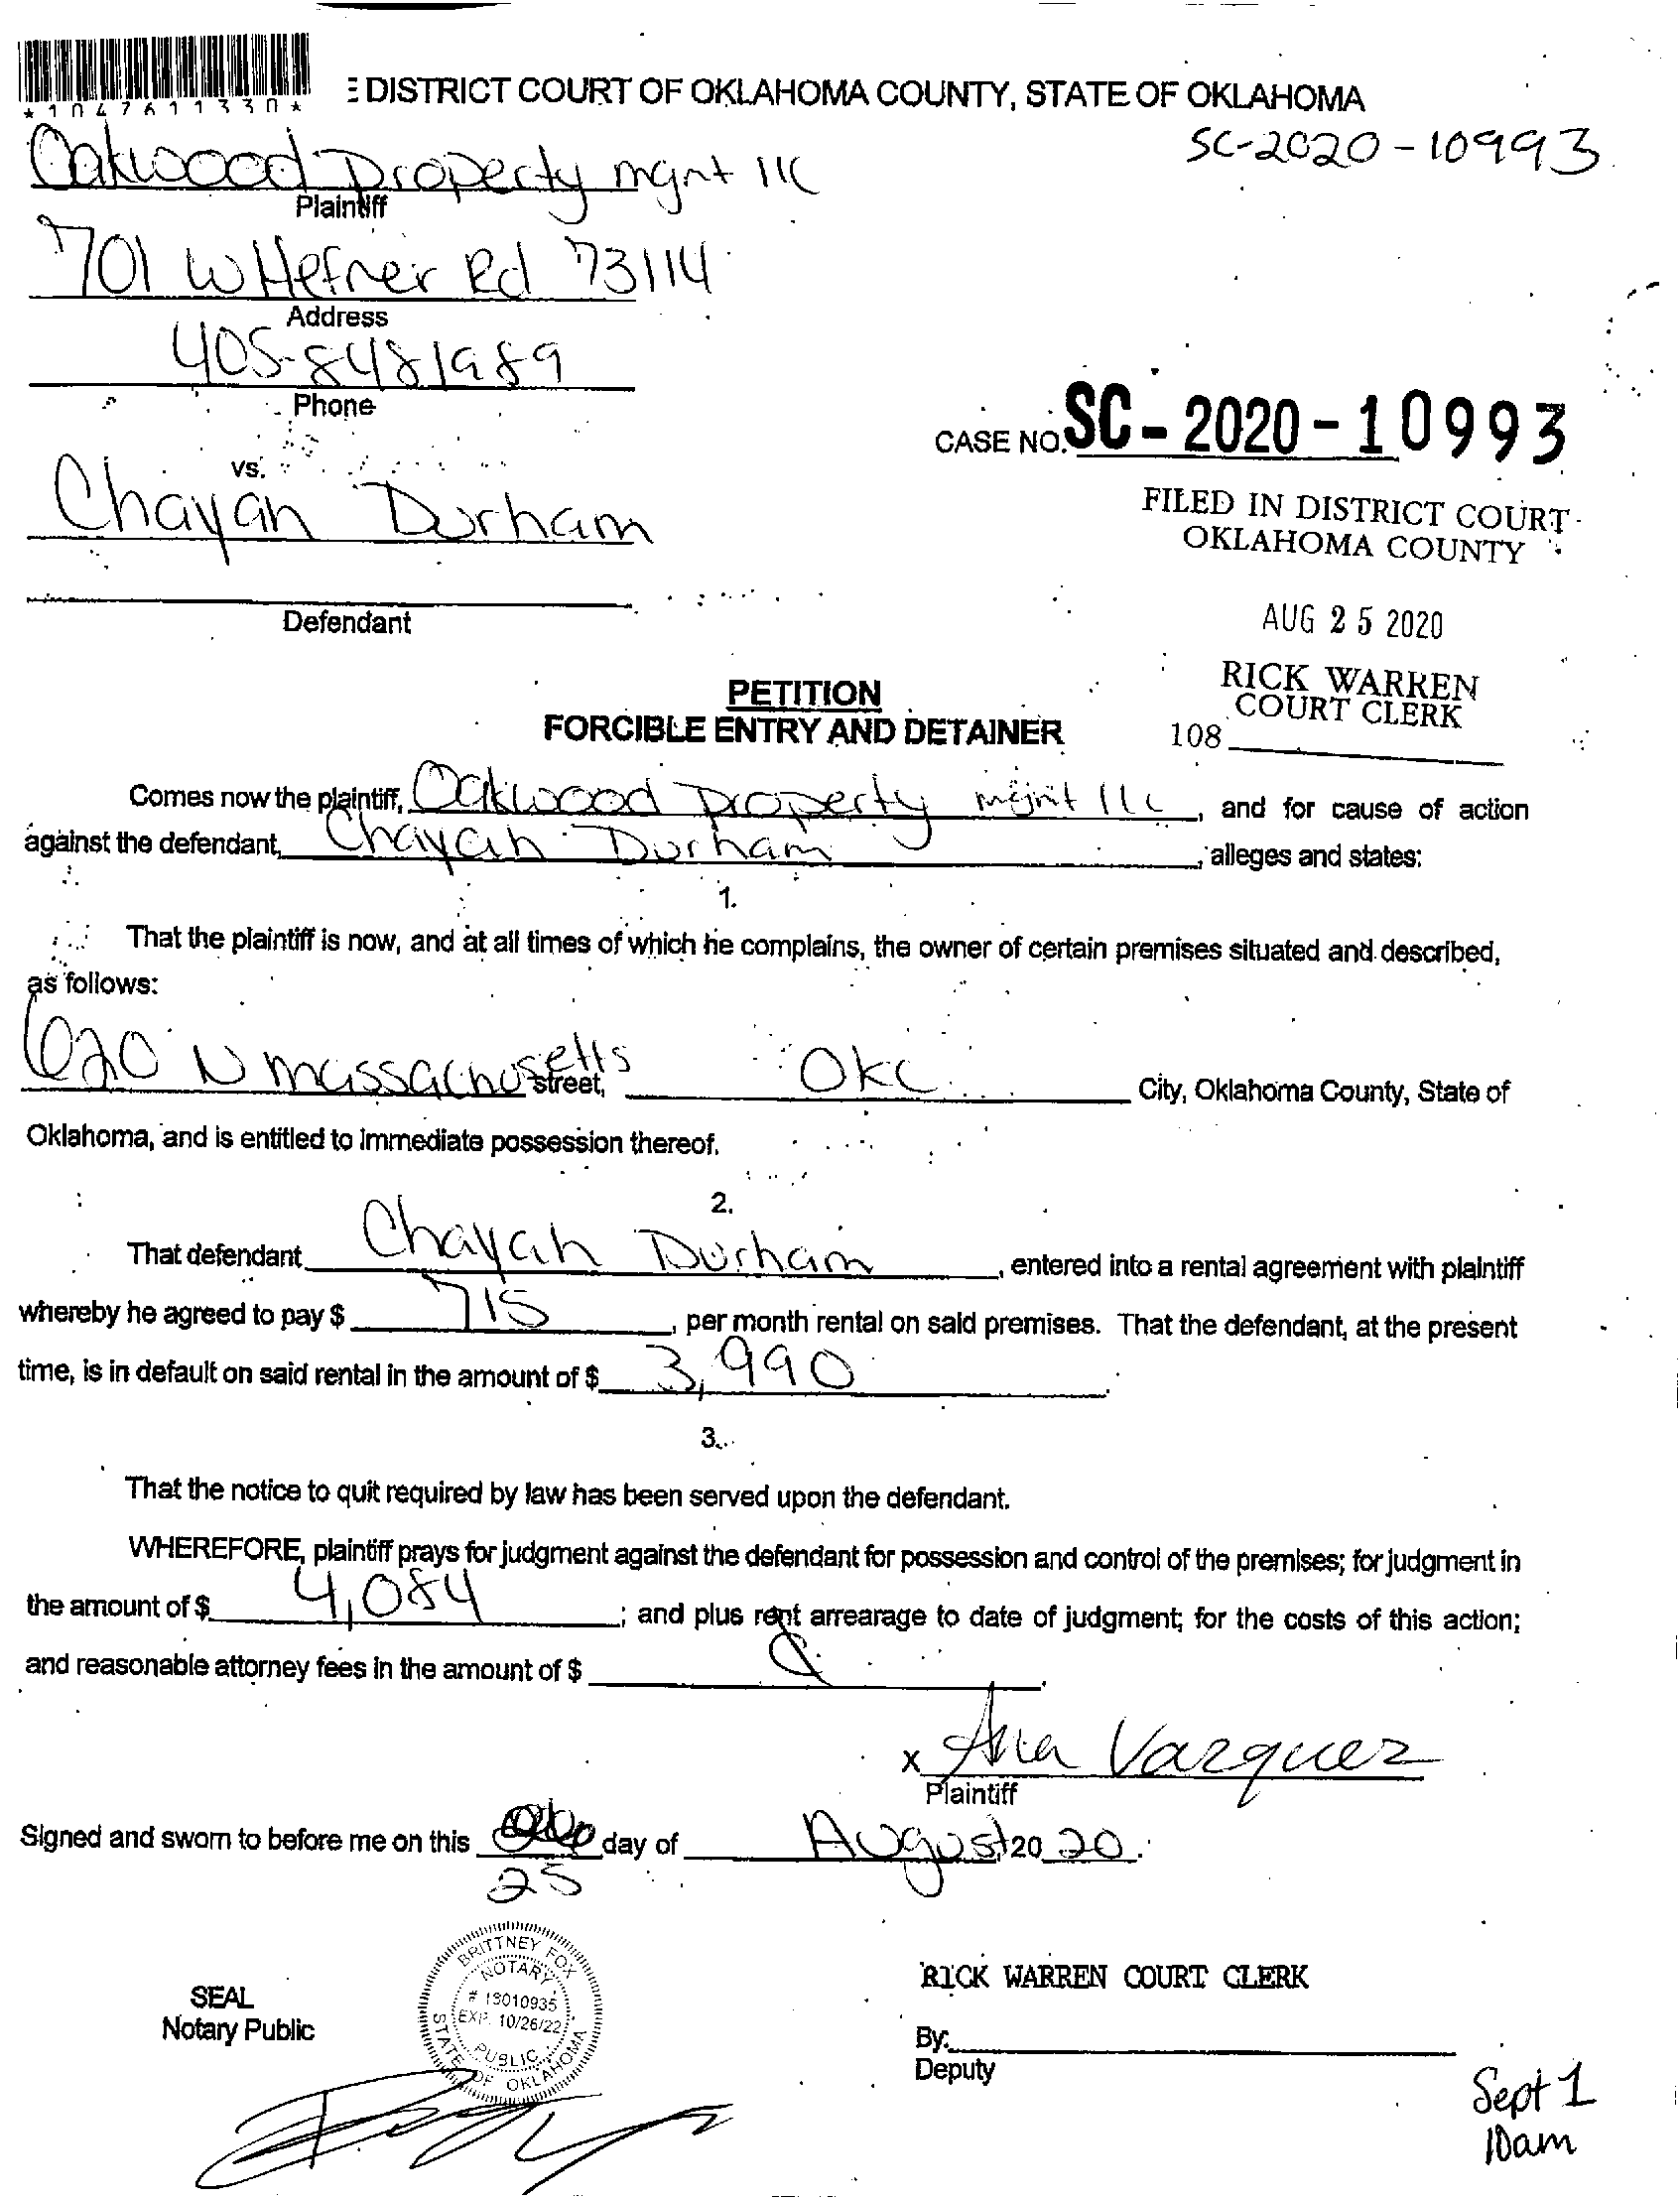 *1047611330*
E DISTRICT COURT OF OKLAHOMA COUNTY, STATE OF OKLAHOMA
SC-2020-10993
Oakwood Property mgnt llc
Plaintiff
701 W Hefner Rd 73114
Address
405-8481989
Phone
CASE NO. SC-2020-10993
vs.
Chayah Durham
FILED IN DISTRICT COURT
OKLAHOMA COUNTY
Defendant
AUG 25 2020
RICK WARREN
COURT CLERK
108
PETITION
FORCIBLE ENTRY AND DETAINER
Comes now the plaintiff, Oakwood Property mgnt llc, and for cause of action
against the defendant, Chayah Durham, alleges and states:
1.
That the plaintiff is now, and at all times of which he complains, the owner of certain premises situated and described,
as follows:
620 N Massachusetts street, OKC City, Oklahoma County, State of
Oklahoma, and is entitled to immediate possession thereof.
2.
That defendant Chayah Durham, entered into a rental agreement with plaintiff
whereby he agreed to pay $ 715, per month rental on said premises. That the defendant, at the present
time, is in default on said rental in the amount of $ 3,990.
3.
That the notice to quit required by law has been served upon the defendant.
WHEREFORE, plaintiff prays for judgment against the defendant for possession and control of the premises; for judgment in
the amount of $ 4,084; and plus rent arrearage to date of judgment; for the costs of this action;
and reasonable attorney fees in the amount of $
x Ana Vazquez
Plaintiff
Signed and sworn to before me on this 25 day of August, 2020.
SEAL
Notary Public
BRITTNEY FOX
NOTARY
# 13010935
EXP. 10/26/22
PUBLIC
STATE OF OKLAHOMA
RICK WARREN COURT CLERK
By:
Deputy
Sept 1
10am